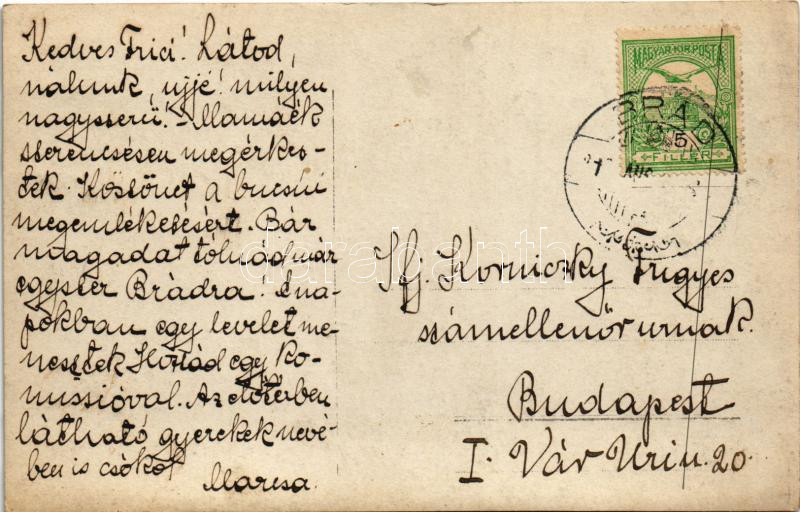 Kedves Frici! Látod,
nálunk, ujjé! milyen
nagyszerű! - Mamáék
szerencsésen megérkez-
tek. Köszönet a bucsúi
megemlékezésért. Bár
magadat tólnád már
egyszer Brádra! E na-
pokban egy levelet me-
nesztek Hozzád egy ko-
missióval. Az előtérben
látható gyerekek nevé-
ben is csókol
Marcsa.
MAGYAR KIR. POSTA
5
FILLÉR
BRÁD
AUG
Ifj. Korniczky Frigyes
számellenőr urnak.
Budapest
I. Vár Uri u. 20.
darabanth